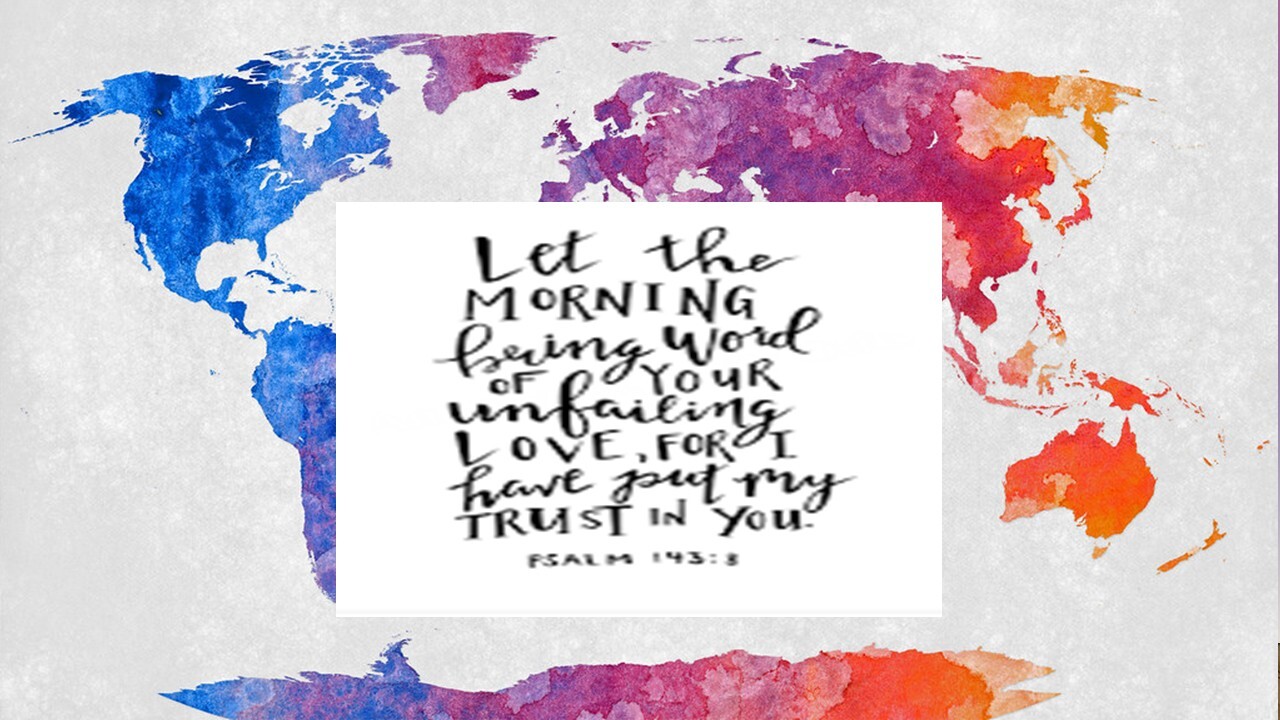 Let the
MORNING
bring Word
OF YOUR
unfailing
LOVE, FOR I
have put my
TRUST IN YOU.
PSALM 143:8